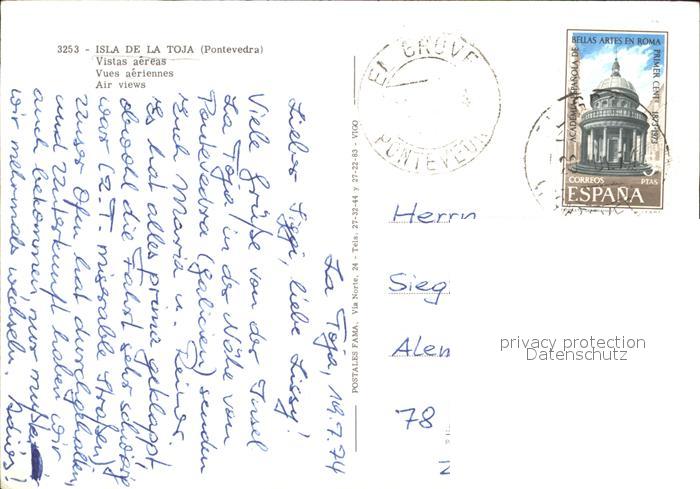 3253 - ISLA DE LA TOJA (Pontevedra)
Vistas aéreas
Vues aériennes
Air views
La Toja, 19.7.74
Lieber Siggi, liebe Lissy!
Viele Grüße von der Insel
La Toja in der Nähe von
Pontevedra (Galicien) senden
Euch Maria u. Reiner.
Es hat alles prima geklappt,
obwohl die Fahrt sehr schwierig
war (z.T. miserable Straßen)
Unser Ofen hat durchgehalten,
und Unterkunft haben wir
auch bekommen, nur mußten
wir mehrmals wechseln. Adiós!
POSTALES FAMA. Vía Norte, 24 - Tels. 27-32-44 y 27-22-83 - VIGO
EL GROVE
PONTEVEDRA
ACADEMIA ESPAÑOLA DE
BELLAS ARTES EN ROMA
PRIMER CENT. 1873-1973
PTAS
CORREOS
ESPAÑA
Herrn
Sieg
Alem
78
privacy protection
Datenschutz